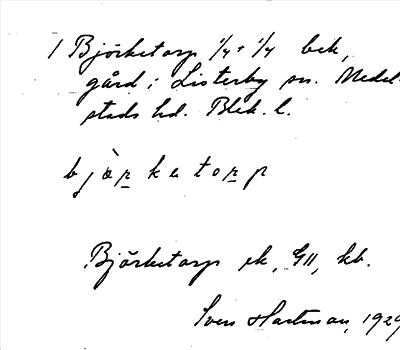 1 Björketorp 1/4 + 1/4 bek,
gård i Listerby sn. Medel-
stads hd. Blek. l.
bjòrketorp
Björketorp ek, GII, kb.
Sven Hartman, 1929